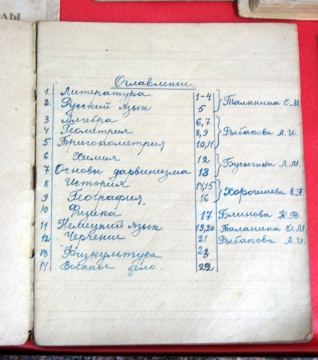 Оглавление.
1. Литература 1-4 Таланина О.М.
2. Русский язык 5
3 Алгебра 6,7
4 Геометрия 8,9 Рыбакова А.И.
5 Тригонометрия 10,11
6 Химия 12
7 Основы дарвинизма 18 Л.М.
8 История 14,15
9 География 16 Хорошаева
10 Физика 17 Блинова
11 Немецкий язык 19,20 Таланина О.М.
12 Черчение 21 Рыбакова А.И.
13 Физкультура
14 Военное дело. 22